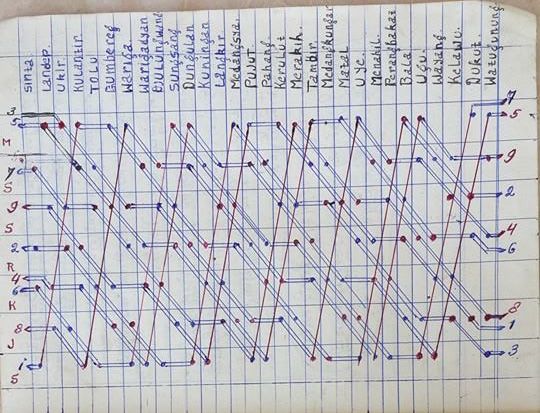 Sinta.
Landep.
Ukir.
Kulantir
Tolu
Gumbereg
Wariga
Warigadyan
Sungsang
Dungulan
Kuningan
Langkir
Medangsya.
Pujut
Pahang
Kerulut
Merakih.
Tambir.
Medangkungan
Matal
Uye
Menahil.
Perangbakat
Bala
Ugu.
Wayang
Kelawu.
Dukut.
Watugunung
3
5
M
7
S
9
S
2
R
4
6
K
8
J
1
S
7
5
9
2
4
6
8
1
3